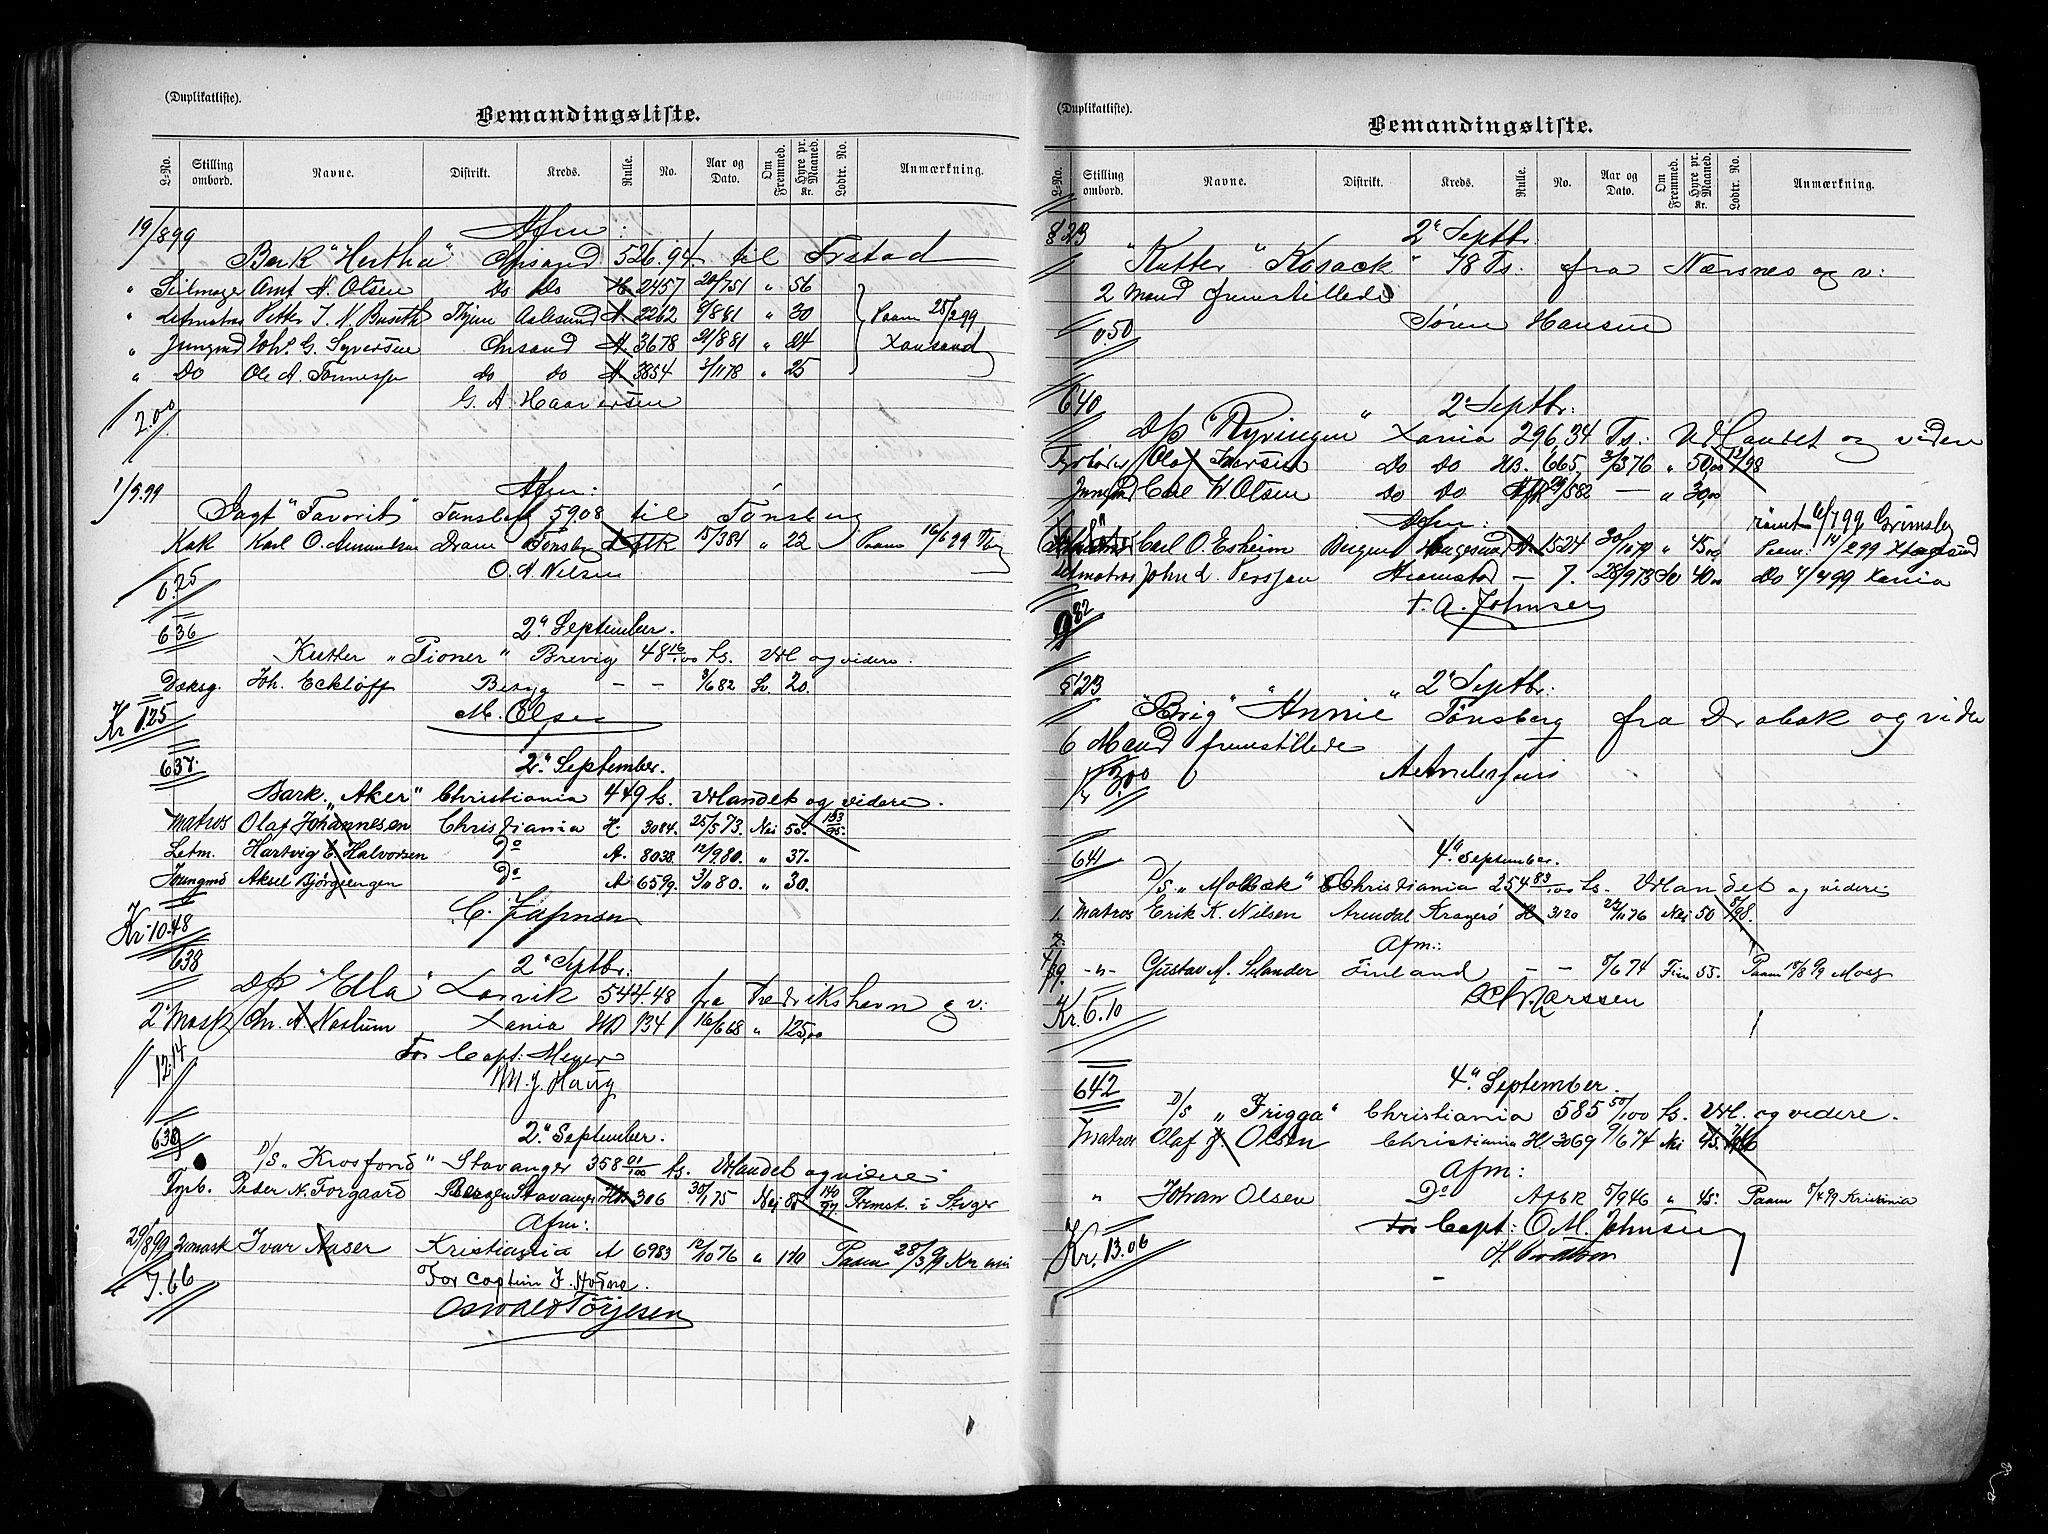 (Duplikatliste).
Bemandingsliste.
L-No. Stilling ombord. Navne. Distrikt. Kreds. Rulle. No. Aar og Dato. Om Fremmed. Hyre pr. Maaned. Kr. Lodtr. No. Anmærkning.
19/8 99 Afm:
Bark "Hertha" Chrsand 526.94 til Frstad
" Seilmager Arnt A. Olsen Do Do 2457 20/7 51 " 56
" Letmatros Petter J. N. Buseth Thjem Aalesund A 2262 8/8 81 " 30 Paam 25/2 99
" Jungmd Joh. G. Syversen Chrsand A. 3678 21/8 81 " 24 Xansand
" Do Ole A. Tønnessen do do A 3854 2/11 78 " 25
G. A. Haaversen
2.00
1/9.99 Afm:
Jagt "Favorit" Tønsberg 59.08 til Tønsberg
Kok Karl O. Amundsen Dram Tønsberg 15/3 84 " 22 Paam 16/6 99 Tbg
O. A. Nilsen
6.25
636 2' September.
Kutter "Pioner" Brevig 48 16/100 ts. Udl og videre.
Dæksg. Joh. Eckløff Besyg — — 9/6 82 Sv. 20.
M. Olsen
Kr 1.25
637. 2' September.
Bark. "Aker" Christiania 449 ts. Udlandet og videre.
Matros Olaf Johannesen Christiania H. 3084. 25/5 73. Nei 50. 153/95.
Letm. Hartvig E. Halvorsen Do A. 8038. 12/9 80. " 37.
Jungmd Aksel Bjørgeengen Do A 6599. 3/11 80. " 30.
C. Johnsen
Kr. 10.48
638 2' Septbr.
D/S "Ella" Larvik 544.48 fra Fredrikshavn og v:
2' Mask Chr. A. Nastum Xania HD 134 16/6 68 " 125,00
For Capt: Meyer
M. J. Haug
12.14
639 2' September.
D/S "Krosfond" Stavanger 358 01/100 ts. Udlandet og videre.
Fyrb. Peder N. Torgaard Bergen Stavanger 306 30/1 75 Nei 85 140/97. Fremst. i Stvger
Afm:
29/8 99 2 mask Ivar Aaser Kristiania A 6983 12/10 76 " 110 Paam 28/3 99 Kr ania
For Captein J. Hodne.
Oswald Tørjesen
7.66
(Duplikatliste).
Bemandingsliste.
L-No. Stilling ombord. Navne. Distrikt. Kreds. Rulle. No. Aar og Dato. Om Fremmed. Hyre pr. Maaned. Kr. Lodtr. No. Anmærkning.
§ 23 2' Septbr.
"Kutter "Kosack" 78 Ts. fra Nærsnes og v:
2 Mand fremstillede
Søren Hansen
0.50
640 " 2' Septbr:
D/S "Ryvingen" Xania 296,34 Ts.: Udlandet og videre
Fyrbøder Olaf Iversen Do Do HB. 665, 3/3 76 " 50,00 12/98
Jungmd Carl W. Olsen Do Do 29/5 82 — " 30,00
Afm: rømt 6/7 99 Grimsby
Carl O. Esheim Bergen Haugesund A. 1524 30/10 79 " 45,00 Paam: 14/2 99 Xhagesund
Letmatros John L. Persson Hramstad — 7. 28/9 73 Sv 40,00 Do 4/4 99 Xania
T. A. Johnsen
9 82
§ 23 " " 2' Septbr:
"Brig "Annie" Tønsberg fra Drøbak og videre
6 Mand fremstillede
A Andersen
3,00
641 4' September.
D/S "Molbæk" Christiania 254 83/100 ts. Udlandet og videre.
1. Matros Erik K. Nilsen Arendal Kragerø H 3120 22/11 76 Nei 50 8/98.
Afm:
-"- Gustav M. Selander Finland — — 5/6 74 Fin 55. Paam 18/8 99 Moss
Kr. 6.10
642 4' September.
D/S "Frigga" Christiania 585 50/100 ts. Udl. og videre.
Matros Olaf J. Olsen Christiania H. 3069 9/6 74 Nei 45.
Afm:
" Johan Olsen Do 5/9 46 " 45. Paam 5/4 99 Kristiania
For Capt: O. M. Johnsen
Kr. 13.06